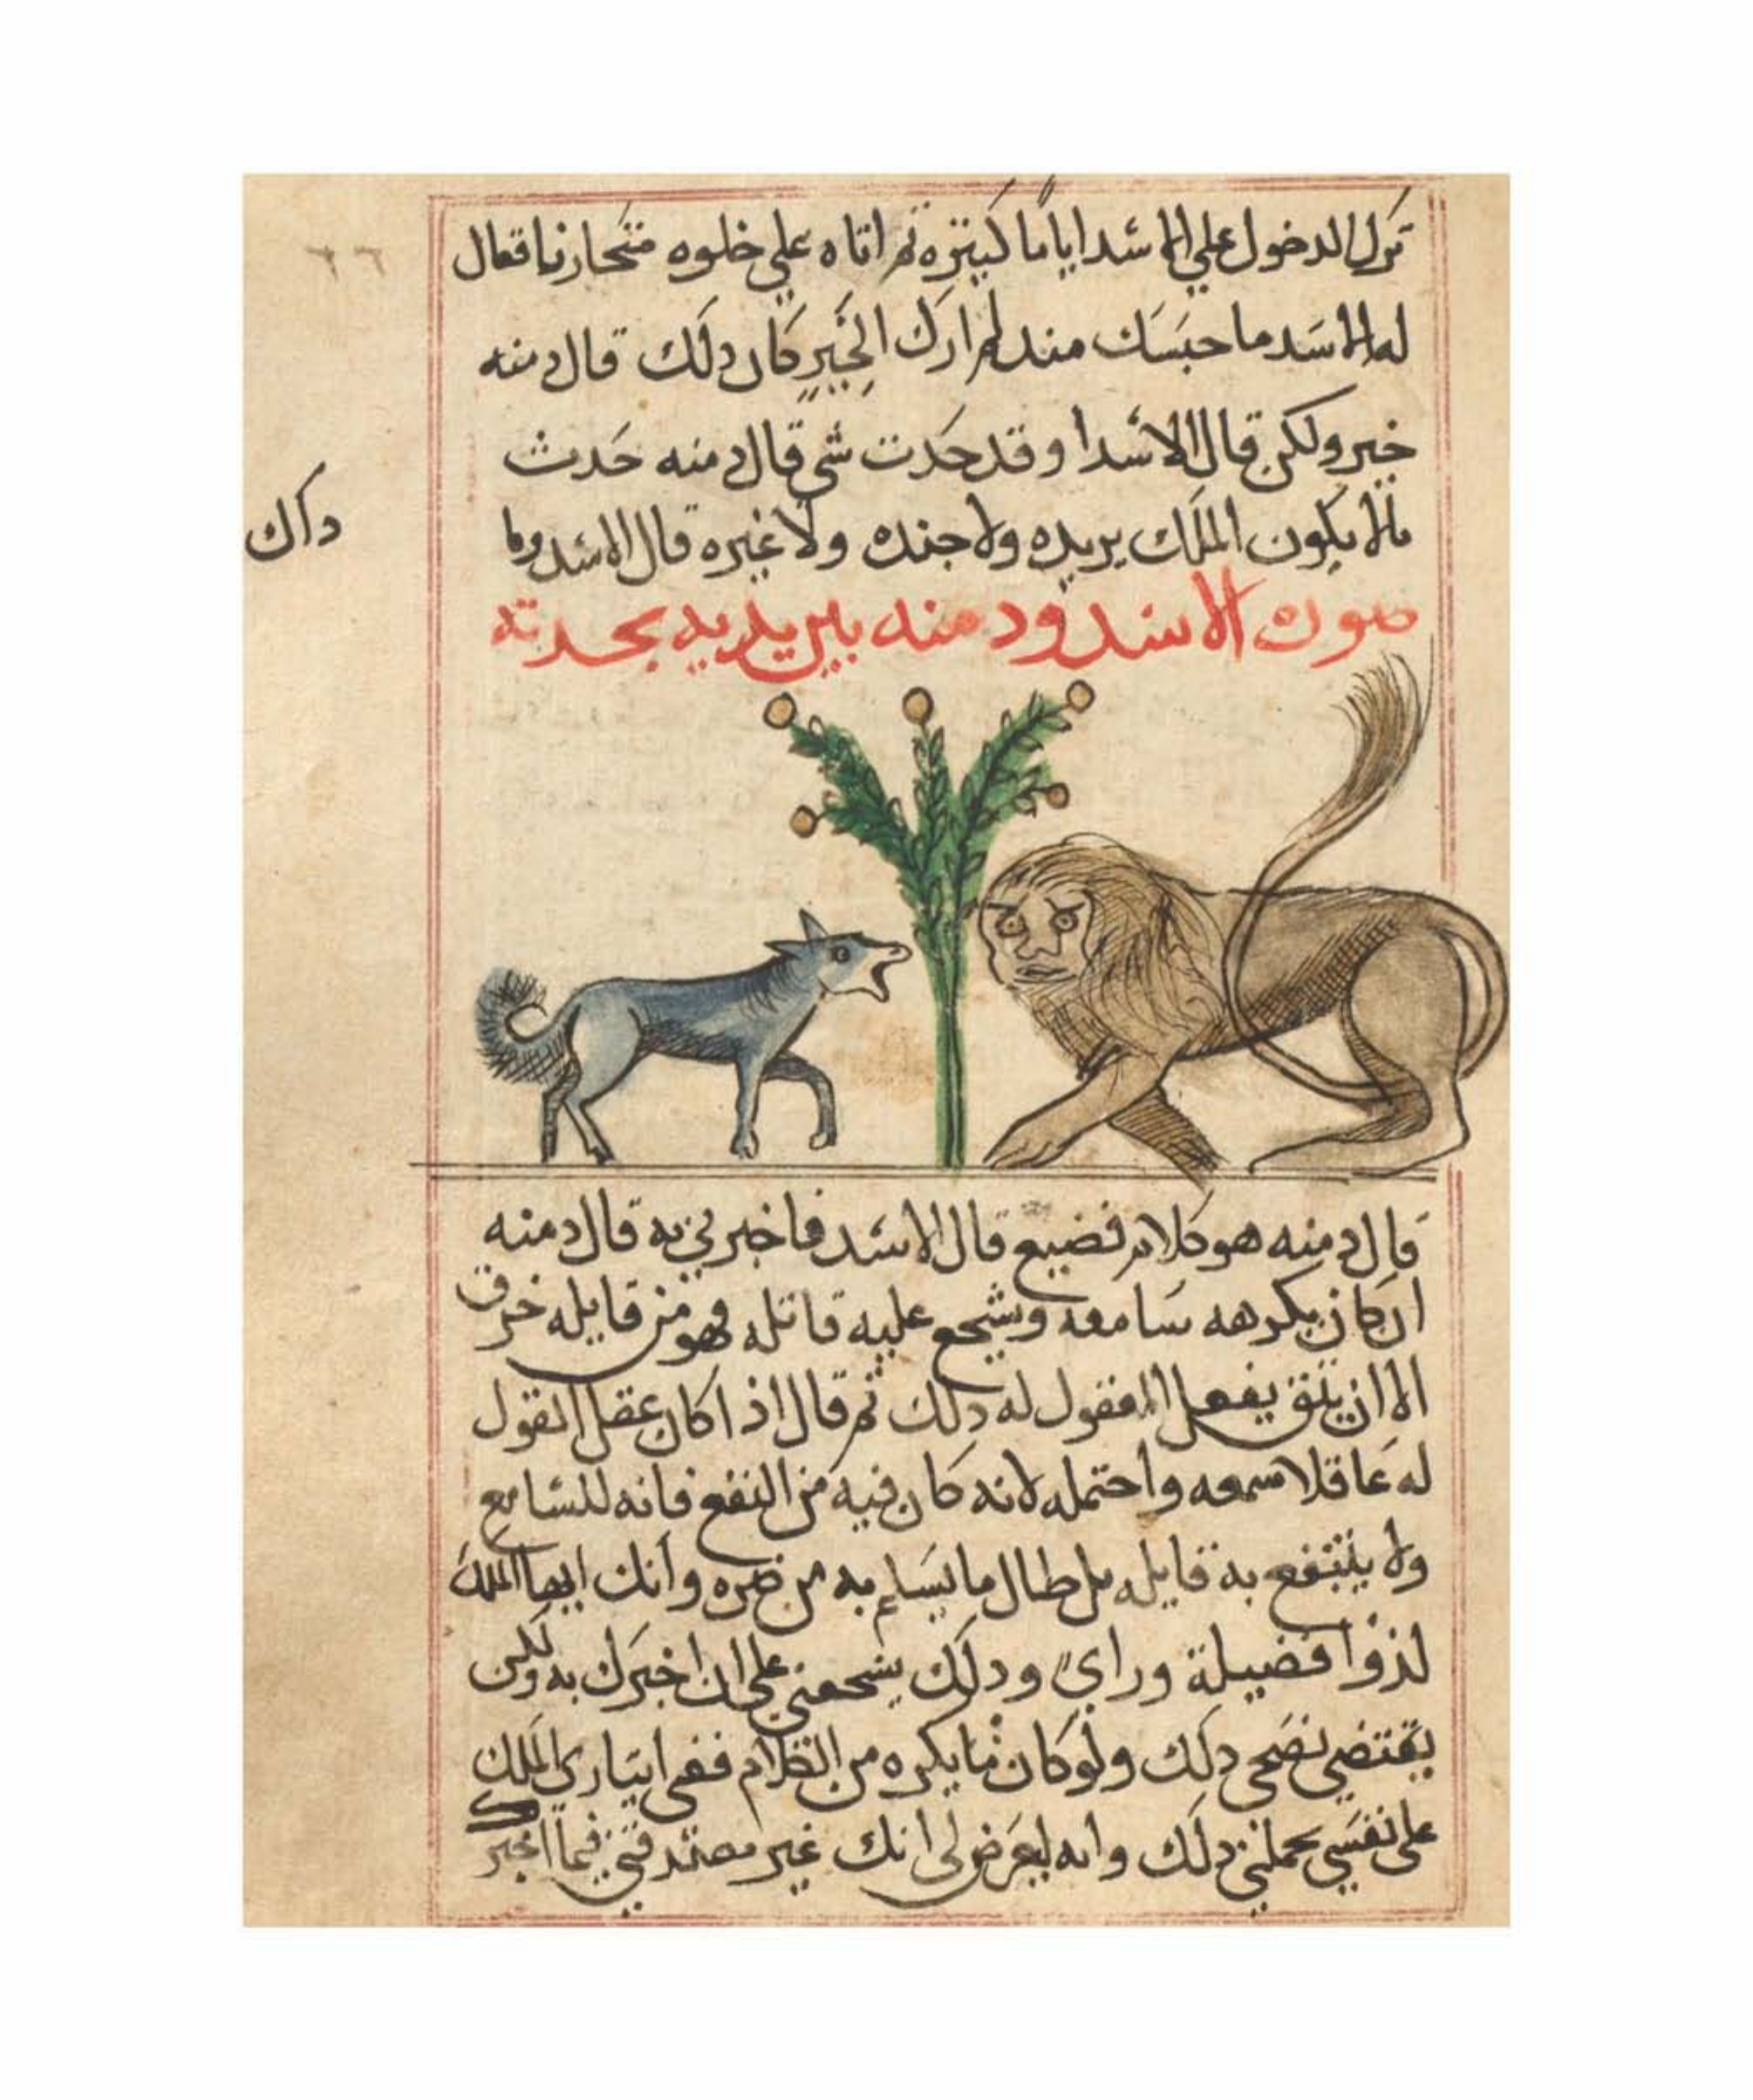 ترك الدخول علي الاسد اياما كثيره ثم اتاه علي خلوه متحازنا فقال
له الاسد ما حبسك مند لم ارك الخير كان دلك قال دمنه
خير ولكن قال الاسد ا وقد حدت شي قال دمنه حدث
مالا يكون الملك يريده ولا جنده ولا غيره قال الاسد وما
داك
صورة الاسد ودمنه بين يديه يحدته
قال دمنه هو كلام فضيع قال الاسد فاخبرني به قال دمنه
ان كان يكرهه سامعه ويشجع عليه قاتله فهو من قايله خرق
الا ان يتق بفعل المقول له دلك ثم قال اذا كان عقل المقول
له عاقلا سمعه واحتمله لانه كان فيه من النفع فانه للسامع
ولا ينتفع به قايله بل طال ما يسلم به من ضره وانك ايها الملك
لذوا فضيلة وراي ودلك يشجعني علي ان اخبرك به ولكن
يقتضي نصحي دلك ولو كان مما يكره من الكلام ففي ايثاري الملك
على نفسي يحملني دلك وانه ليعرض لي انك غير مصدقني فيما اخبرك
٦٦